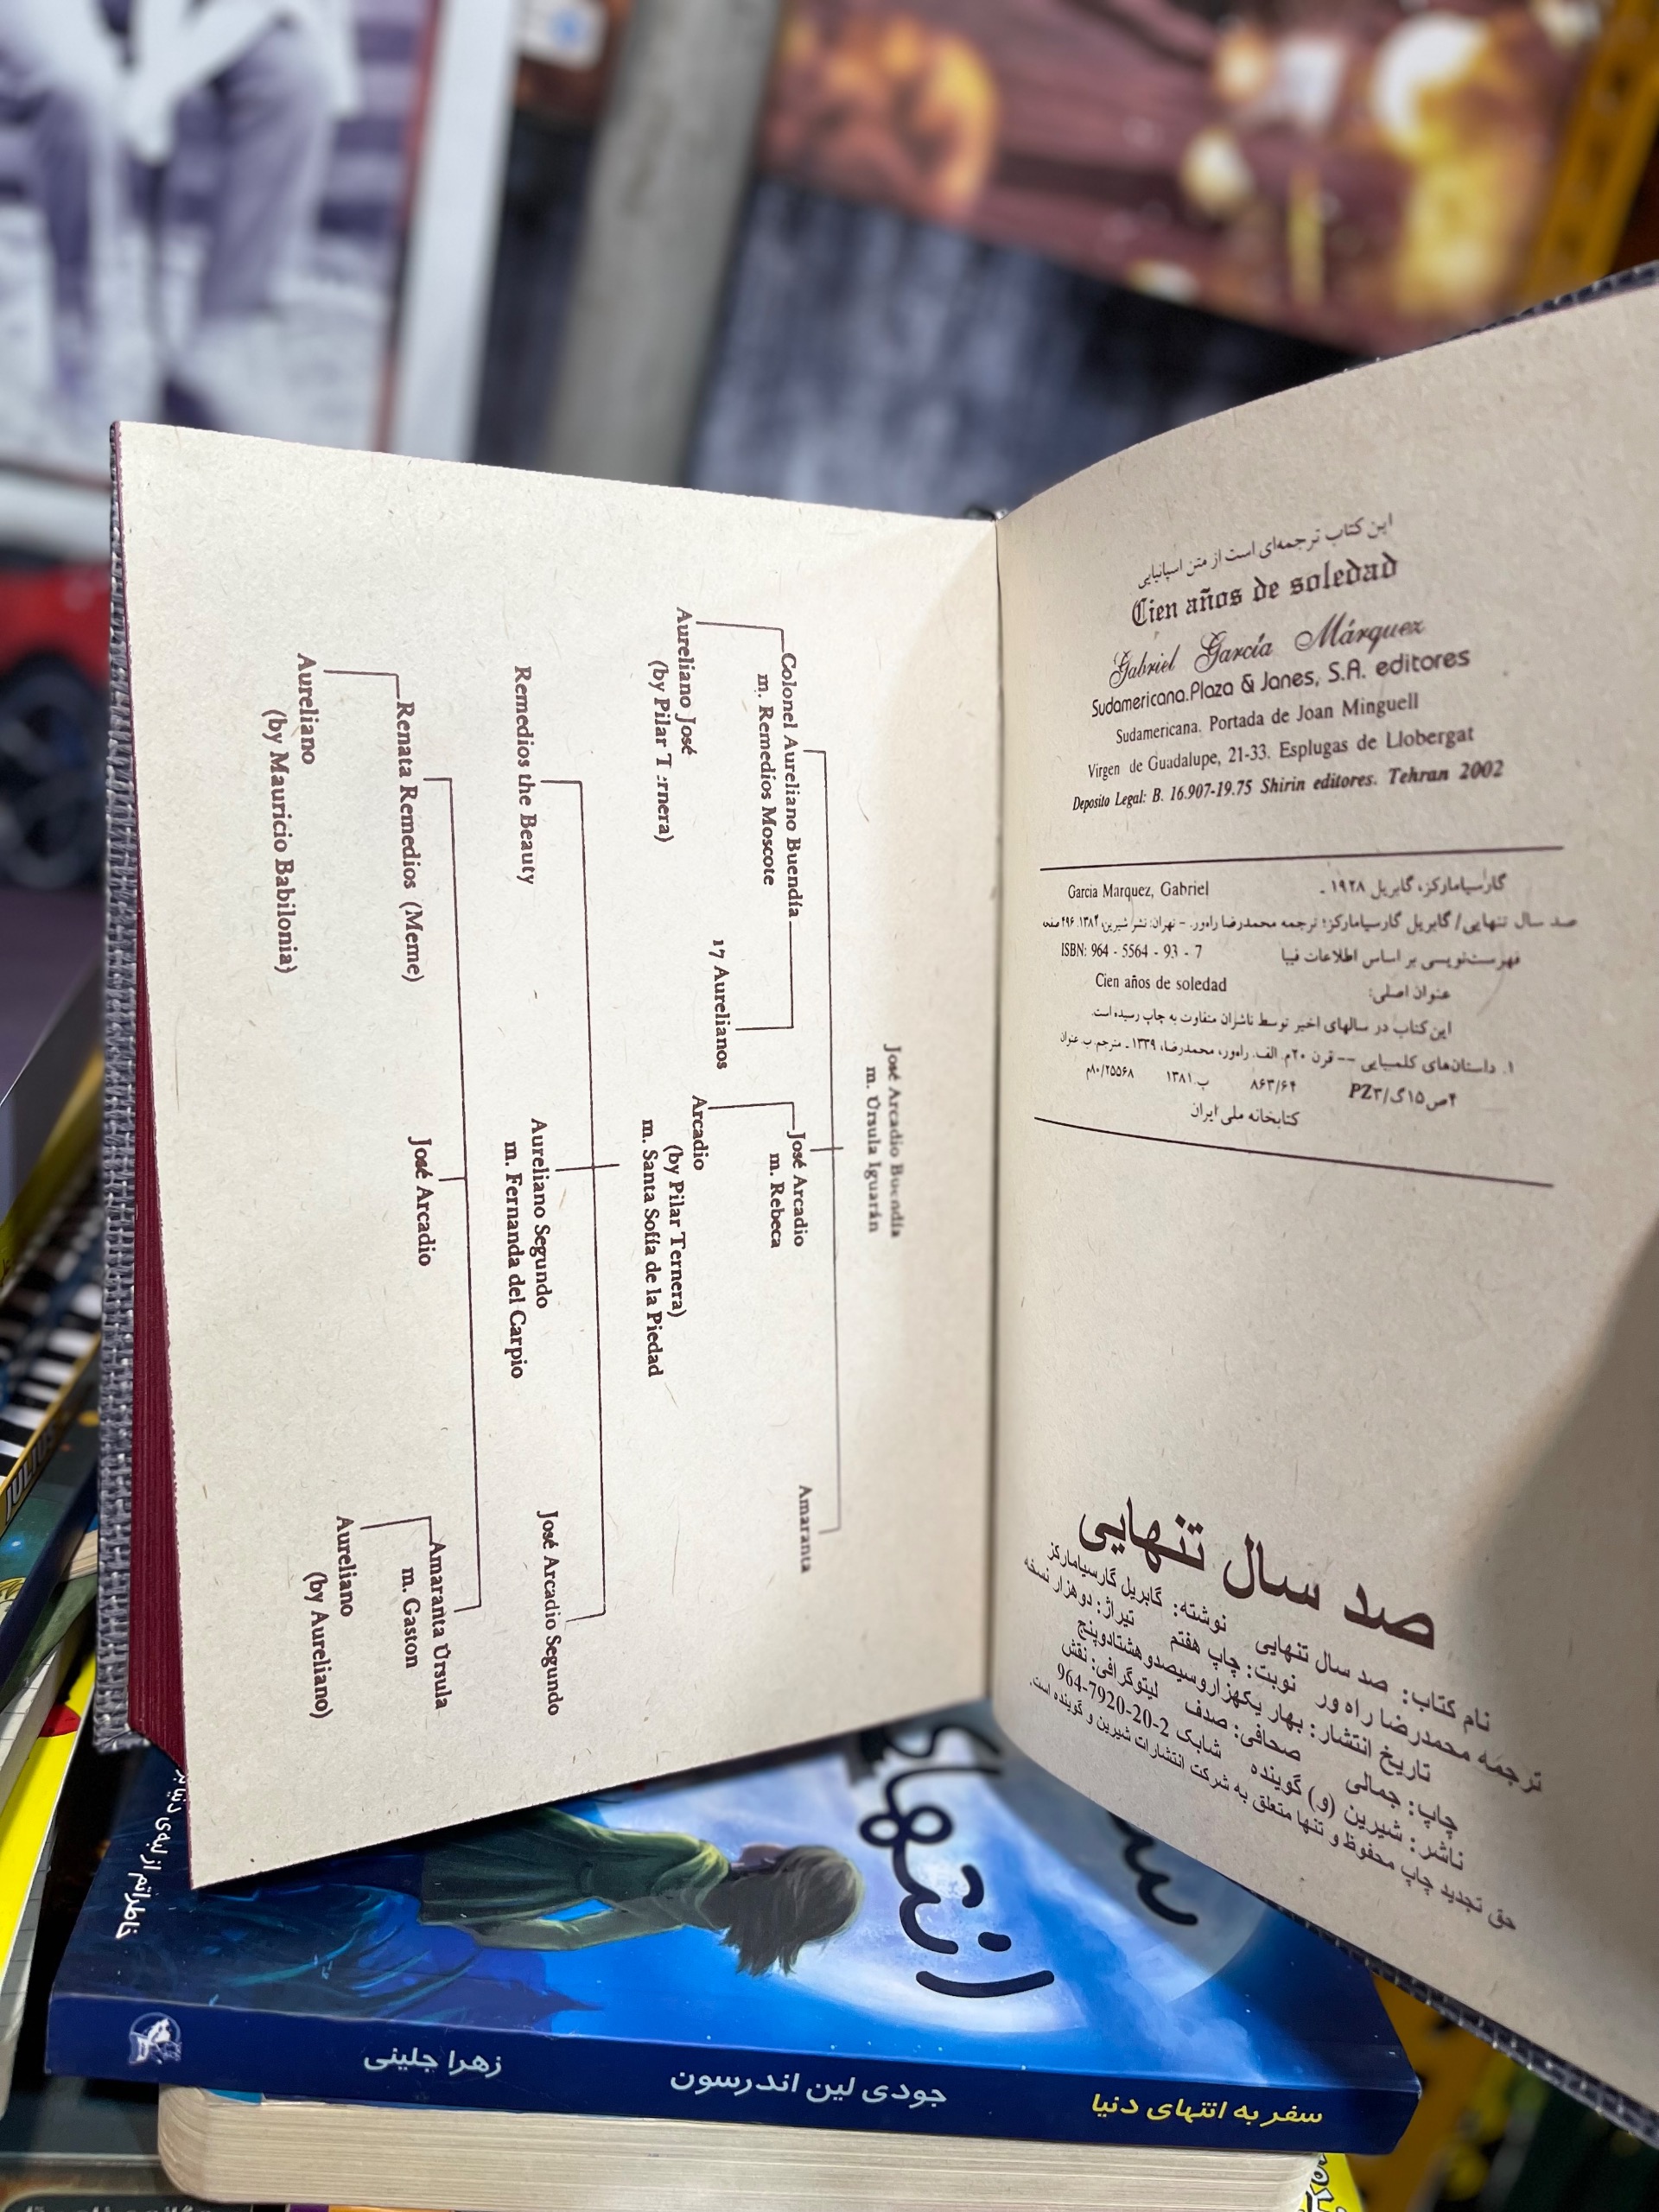 این کتاب ترجمه‌ای است از متن اسپانیایی
Cien años de soledad
Gabriel García Márquez
Sudamericana.Plaza & Janes, S.A. editores
Sudamericana. Portada de Joan Minguell
Virgen de Guadalupe, 21-33. Esplugas de Llobergat
Deposito Legal: B. 16.907-19.75 Shirin editores. Tehran 2002
گارسیامارکز، گابریل ۱۹۲۸ ـ
Garcia Marquez, Gabriel
صد سال تنهایی/ گابریل گارسیامارکز؛ ترجمه محمدرضا راه‌ور. - تهران: نشر شیرین،
فهرست‌نویسی بر اساس اطلاعات فیپا
ISBN: 964 - 5564 - 93 - 7
عنوان اصلی:
Cien años de soledad
این کتاب در سالهای اخیر توسط ناشران متفاوت به چاپ رسیده است.
۱. داستان‌های کلمبیایی -- قرن ۲۰م. الف. راه‌ور، محمدرضا، ۱۳۳۹ـ مترجم.ب.عنوان
۴ص۱۵گ/PZ۳
۸۶۳/۶۴
ب.۱۳۸۱
۸۰/۲۵۵۶۸م
کتابخانه ملی ایران
صد سال تنهایی
نام کتاب: صد سال تنهایی نوشته: گابریل گارسیامارکز
ترجمه محمدرضا راه ور نوبت: چاپ هفتم تیراژ: دوهزار نسخه
تاریخ انتشار: بهار یکهزاروسیصدوهشتادوپنج
چاپ: جمالی صحافی: صدف لیتوگرافی: نقش
ناشر: شیرین (و) گوینده شابک 2-20-7920-964
حق تجدید چاپ محفوظ و تنها متعلق به شرکت انتشارات شیرین و گوینده است.
José Arcadio Buendía
m. Úrsula Iguarán
Colonel Aureliano Buendía
m. Remedios Moscote
José Arcadio
m. Rebeca
Amaranta
Aureliano José
(by Pilar T :rnera)
17 Aurelianos
Arcadio
(by Pilar Ternera)
m. Santa Sofía de la Piedad
Remedios the Beauty
Aureliano Segundo
m. Fernanda del Carpio
José Arcadio Segundo
Renata Remedios (Meme)
José Arcadio
Amaranta Úrsula
m. Gaston
Aureliano
(by Mauricio Babilonia)
Aureliano
(by Aureliano)
سفر به انتهای دنیا
جودی لین اندرسون
زهرا جلینی
JULIUS